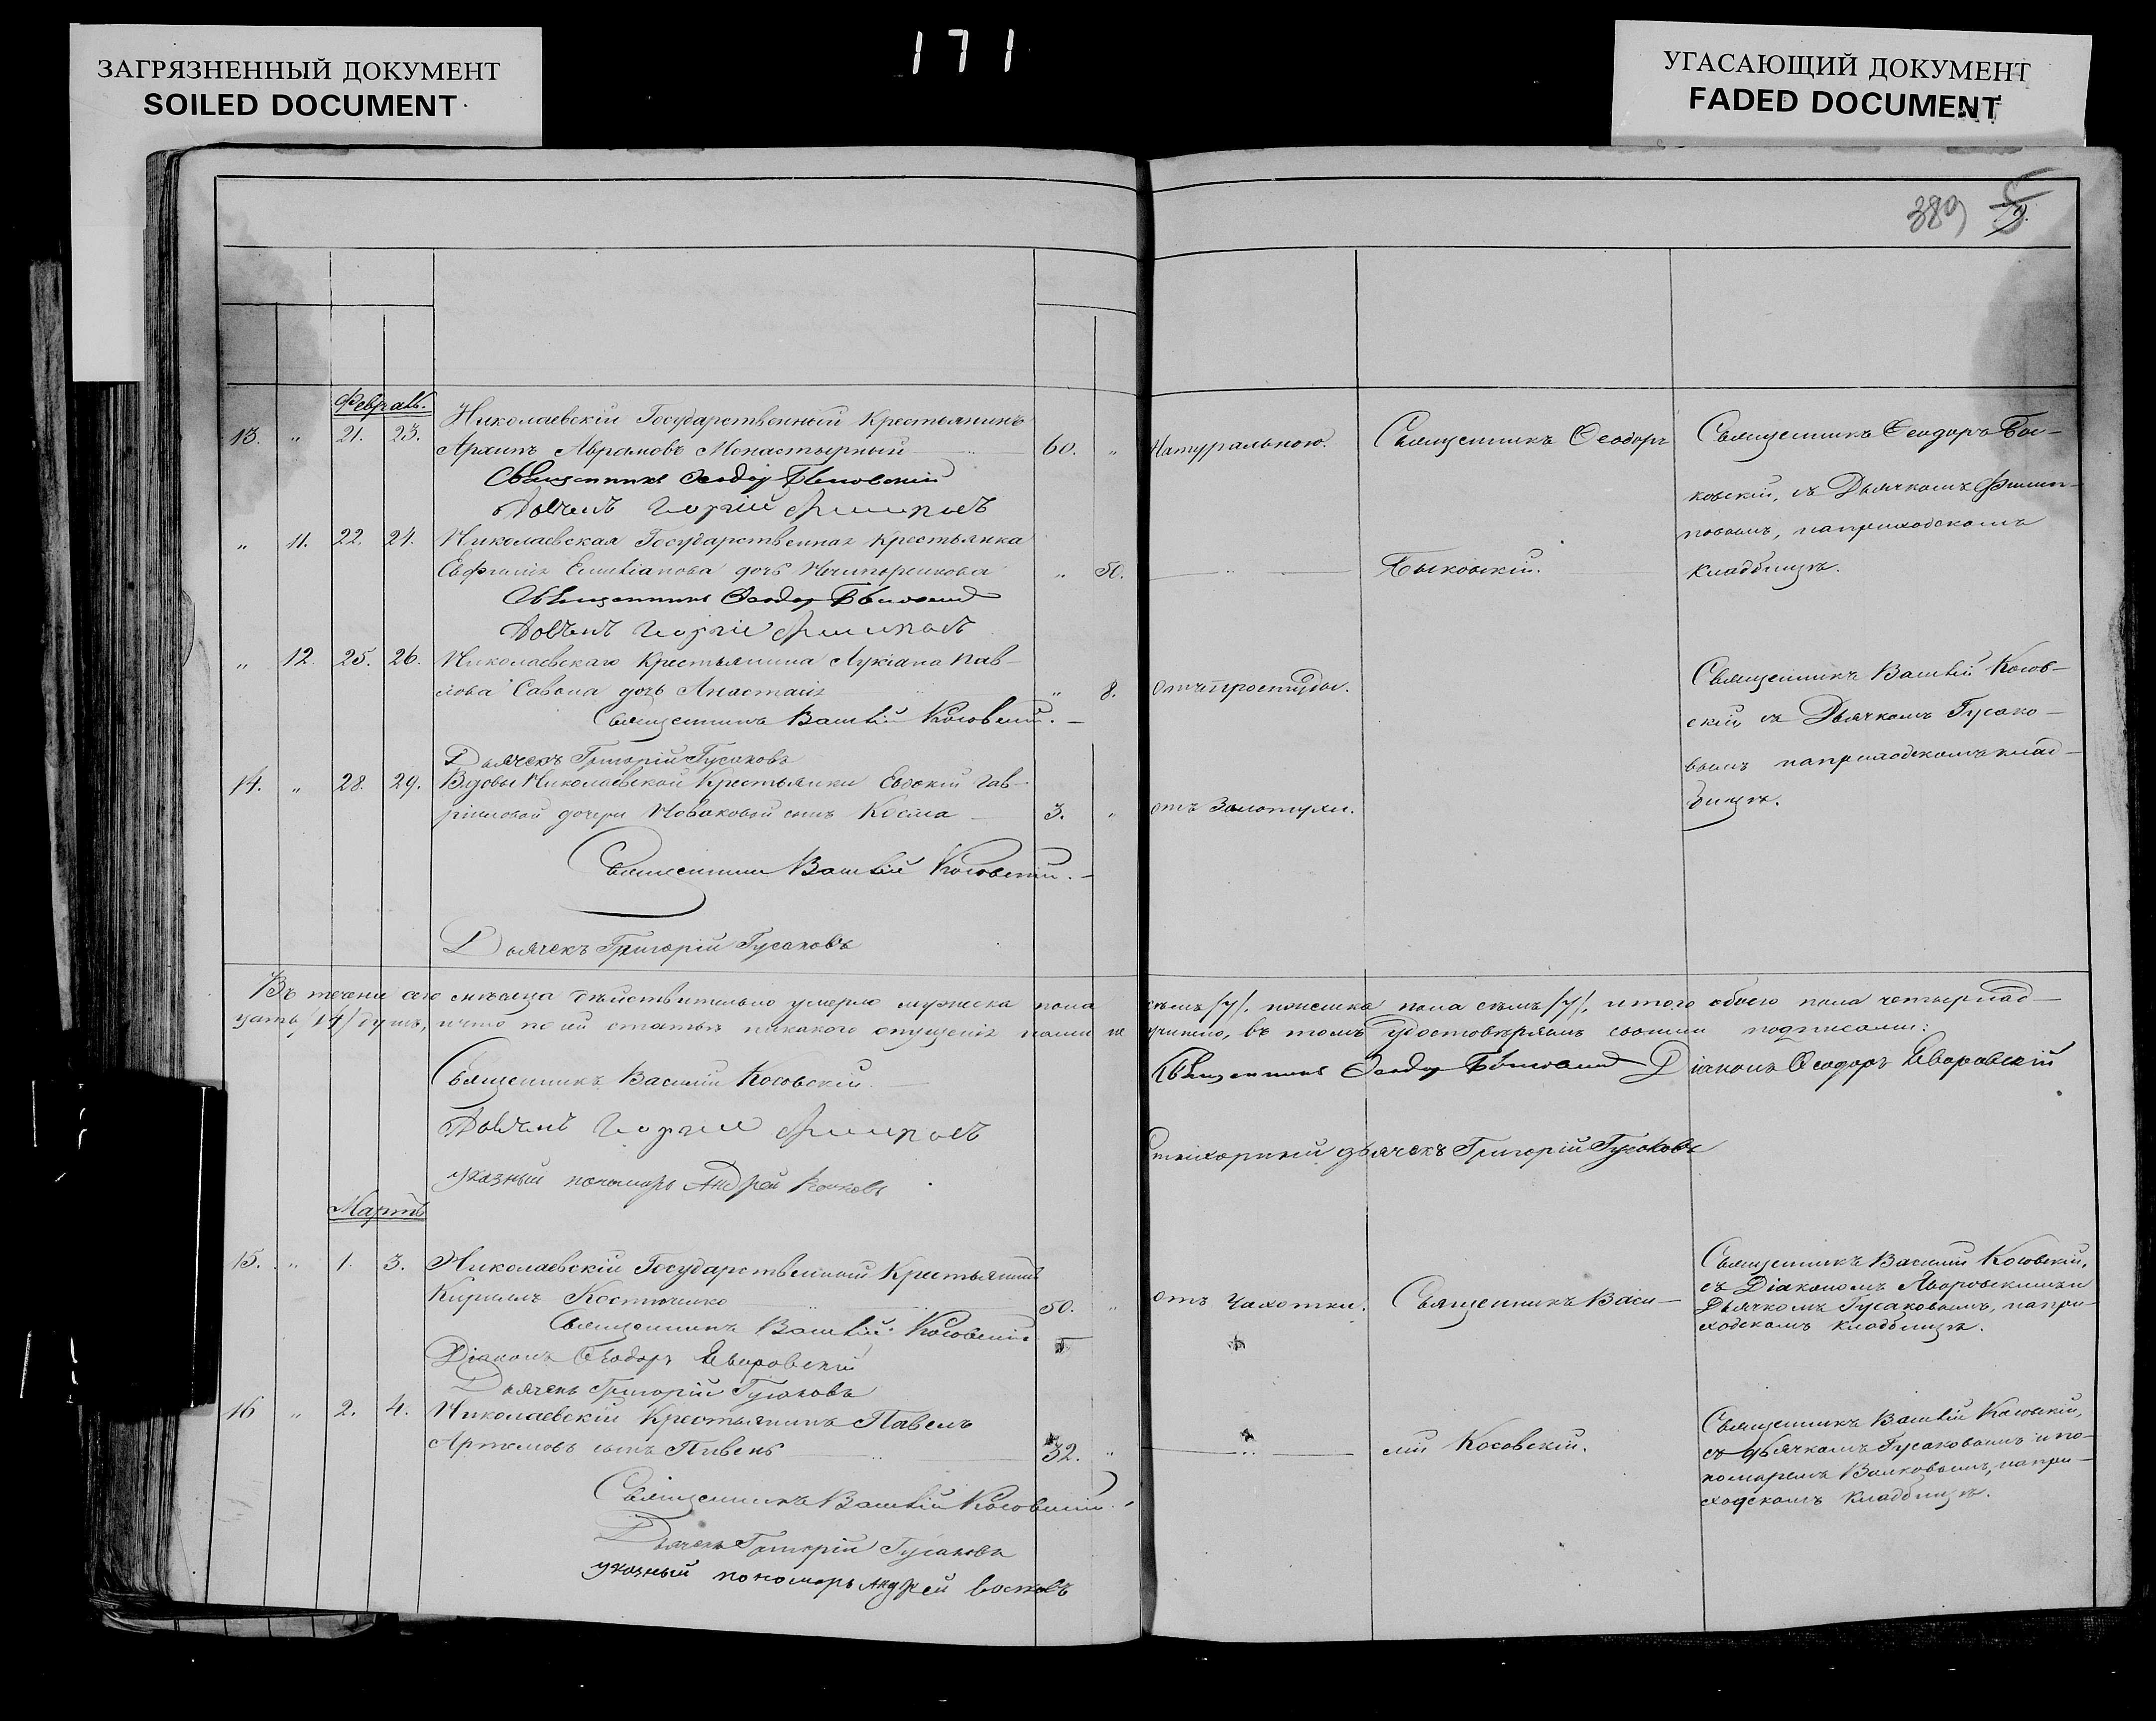 ЗАГРЯЗНЕННЫЙ ДОКУМЕНТ
SOILED DOCUMENT
171
УГАСАЮЩИЙ ДОКУМЕНТ
FADED DOCUMENT
389
Февраль.
13. " 21. 23. Николаевскій Государственный Крестьянинъ
Архипъ Аврамовъ Монастырный 60. "
Священникъ Ѳеодоръ Быковскій
"  11. 22. 24. Николаевская Государственная Крестьянка
Евфимія Емиліанова дочь " 50.
Священникъ Ѳеодоръ Быковскій
" 12. 25. 26. Николаевскаго Крестьянина Лукіана Пав-
лова Савона дочь Анастасія " 8.
Священникъ Василій Косовскій.
Дьячекъ Григорій Гусаковъ
14. " 28. 29. Вдовы Николаевской Крестьянки Евдокіи Гав-
риловой дочери Новаковой сынъ Косма 3. "
Священникъ Василій Косовскій.
Дьячекъ Григорій Гусаковъ
Натуральною. Священникъ Ѳеодоръ
Быковскій.
Священникъ Ѳеодоръ Бы-
ковскій, съ Дьячкомъ Филип-
повымъ, на приходскомъ
кладбищѣ.
отъ простуды.
Священникъ Василій Косов-
скій, съ Дьячкомъ Гусако-
вымъ на приходскомъ клад-
бищѣ.
отъ Золотухи.
Въ теченіи сего мѣсяца дѣйствительно умерло мужеска пола семь /7/. женска пола семь /7/. итого обоего пола четырнад-
цать /14/ душъ, и что по сей статьѣ никакого опущенія нами не учинено, въ томъ удостовѣряемъ своими подписами:
Священникъ Василій Косовскій
Священникъ Ѳеодоръ Быковскій Діаконъ Ѳеодоръ Яворовскій
Стихарный дьячекъ Григорій Гусаковъ
указный пономарь Андрей
Мартъ
15. " 1. 3. Николаевскій Государственный Крестьянинъ
Кириллъ Костюченко 50. "
Священникъ Василій Косовскій
Діаконъ Ѳеодоръ Яворовскій
Дьячекъ Григорій Гусаковъ
16 " 2. 4. Николаевскій Крестьянинъ Павелъ
Артемовъ сынъ Пивень 32. "
Священникъ Василій Косовскій
Дьячекъ Григорій Гусаковъ
указный пономарь Андрей
отъ Чахотки. Священникъ Васи-
лій Косовскій.
Священникъ Василій Косовскій,
съ Діакономъ Яворовскимъ и
Дьячкомъ Гусаковымъ, на при-
ходскомъ кладбищѣ.
Священникъ Василій Косовскій,
съ дьячкомъ Гусаковымъ и по-
номаремъ Волковымъ, на при-
ходскомъ кладбищѣ.